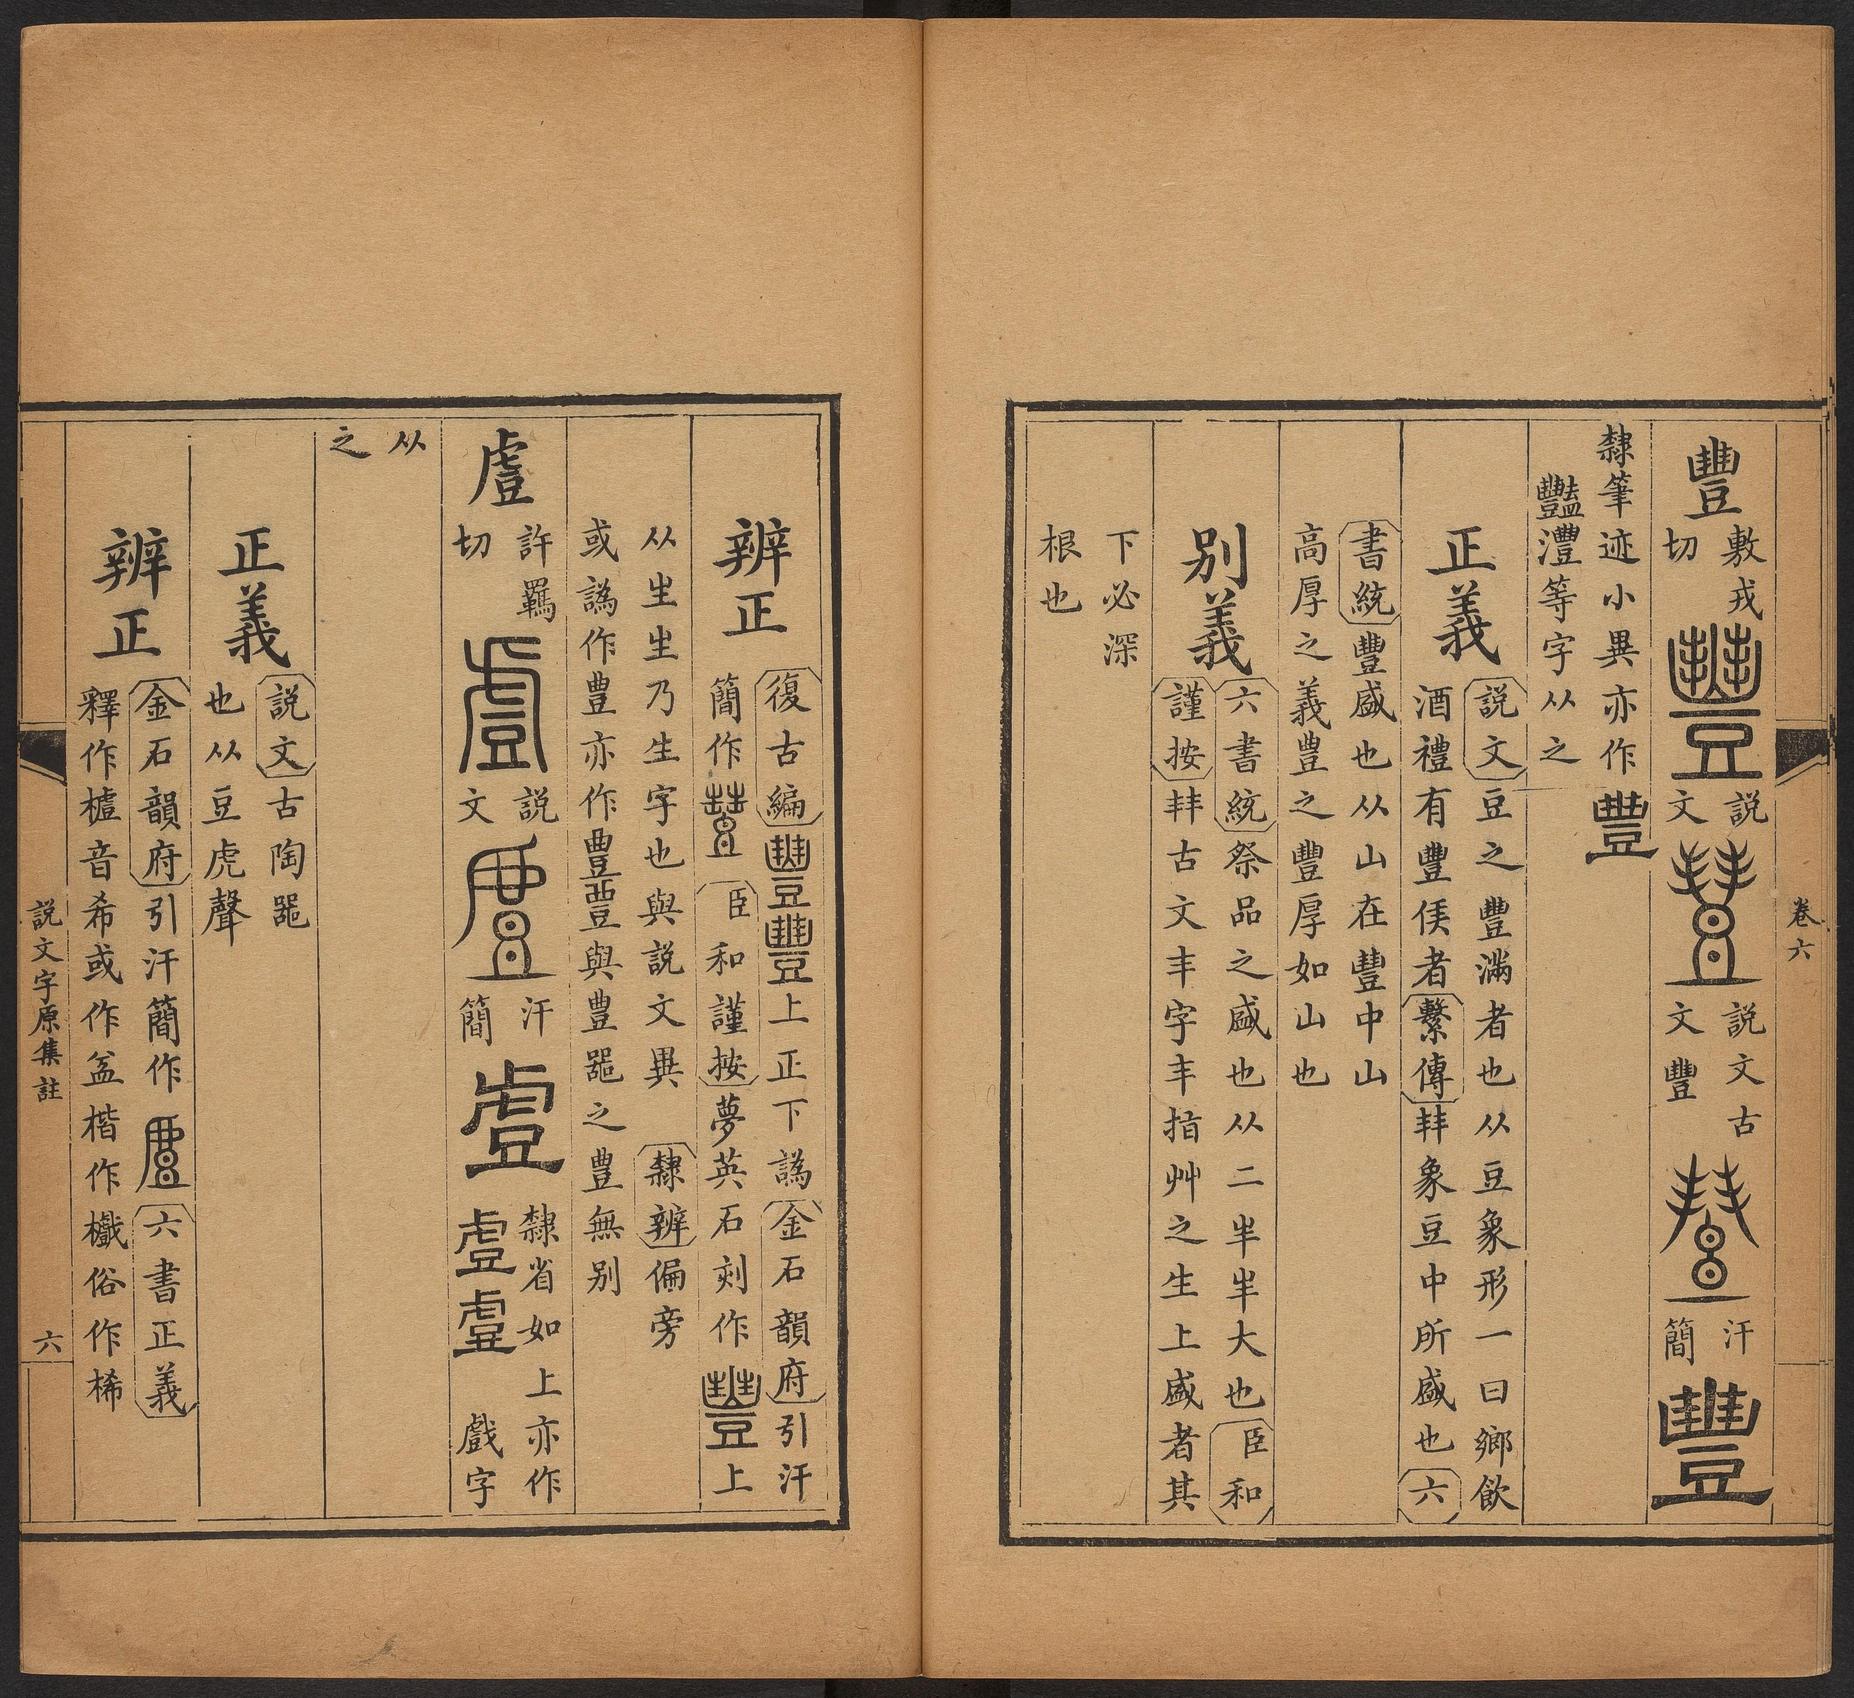 卷六
豐
敷戎
切
豐
説
文
豐
説文古
文豐
豐
汗
簡
豐
隸筆迹小異亦作豐
豔灃等字从之
正義
説文豆之豐滿者也从豆象形一曰鄉飲
酒禮有豐侯者繫傳䒠象豆中所盛也六
書統豐盛也从山在豐中山
高厚之義豐之豐厚如山也
别義
六書統祭品之盛也从二半半大也臣和
謹按䒠古文丰字丰指艸之生上盛者其
下必深
根也
辨正
復古編豐豐上正下譌金石韻府引汗
簡作豐臣和謹按夢英石刻作豐上
从生生乃生字也與説文異 隸辨偏旁
或譌作豊亦作豊豊與豊器之豊無别
䖒
許羈
切
䖒
説
文
䖒
汗
簡
䖒
隸省如上亦作
䖒䖒戲字
从
之
正義
説文古陶器
也从豆虍聲
辨正
金石韻府引汗簡作䖒六書正義
釋作樝音希或作㿽楷作㰕俗作桸
説文字原集註
六